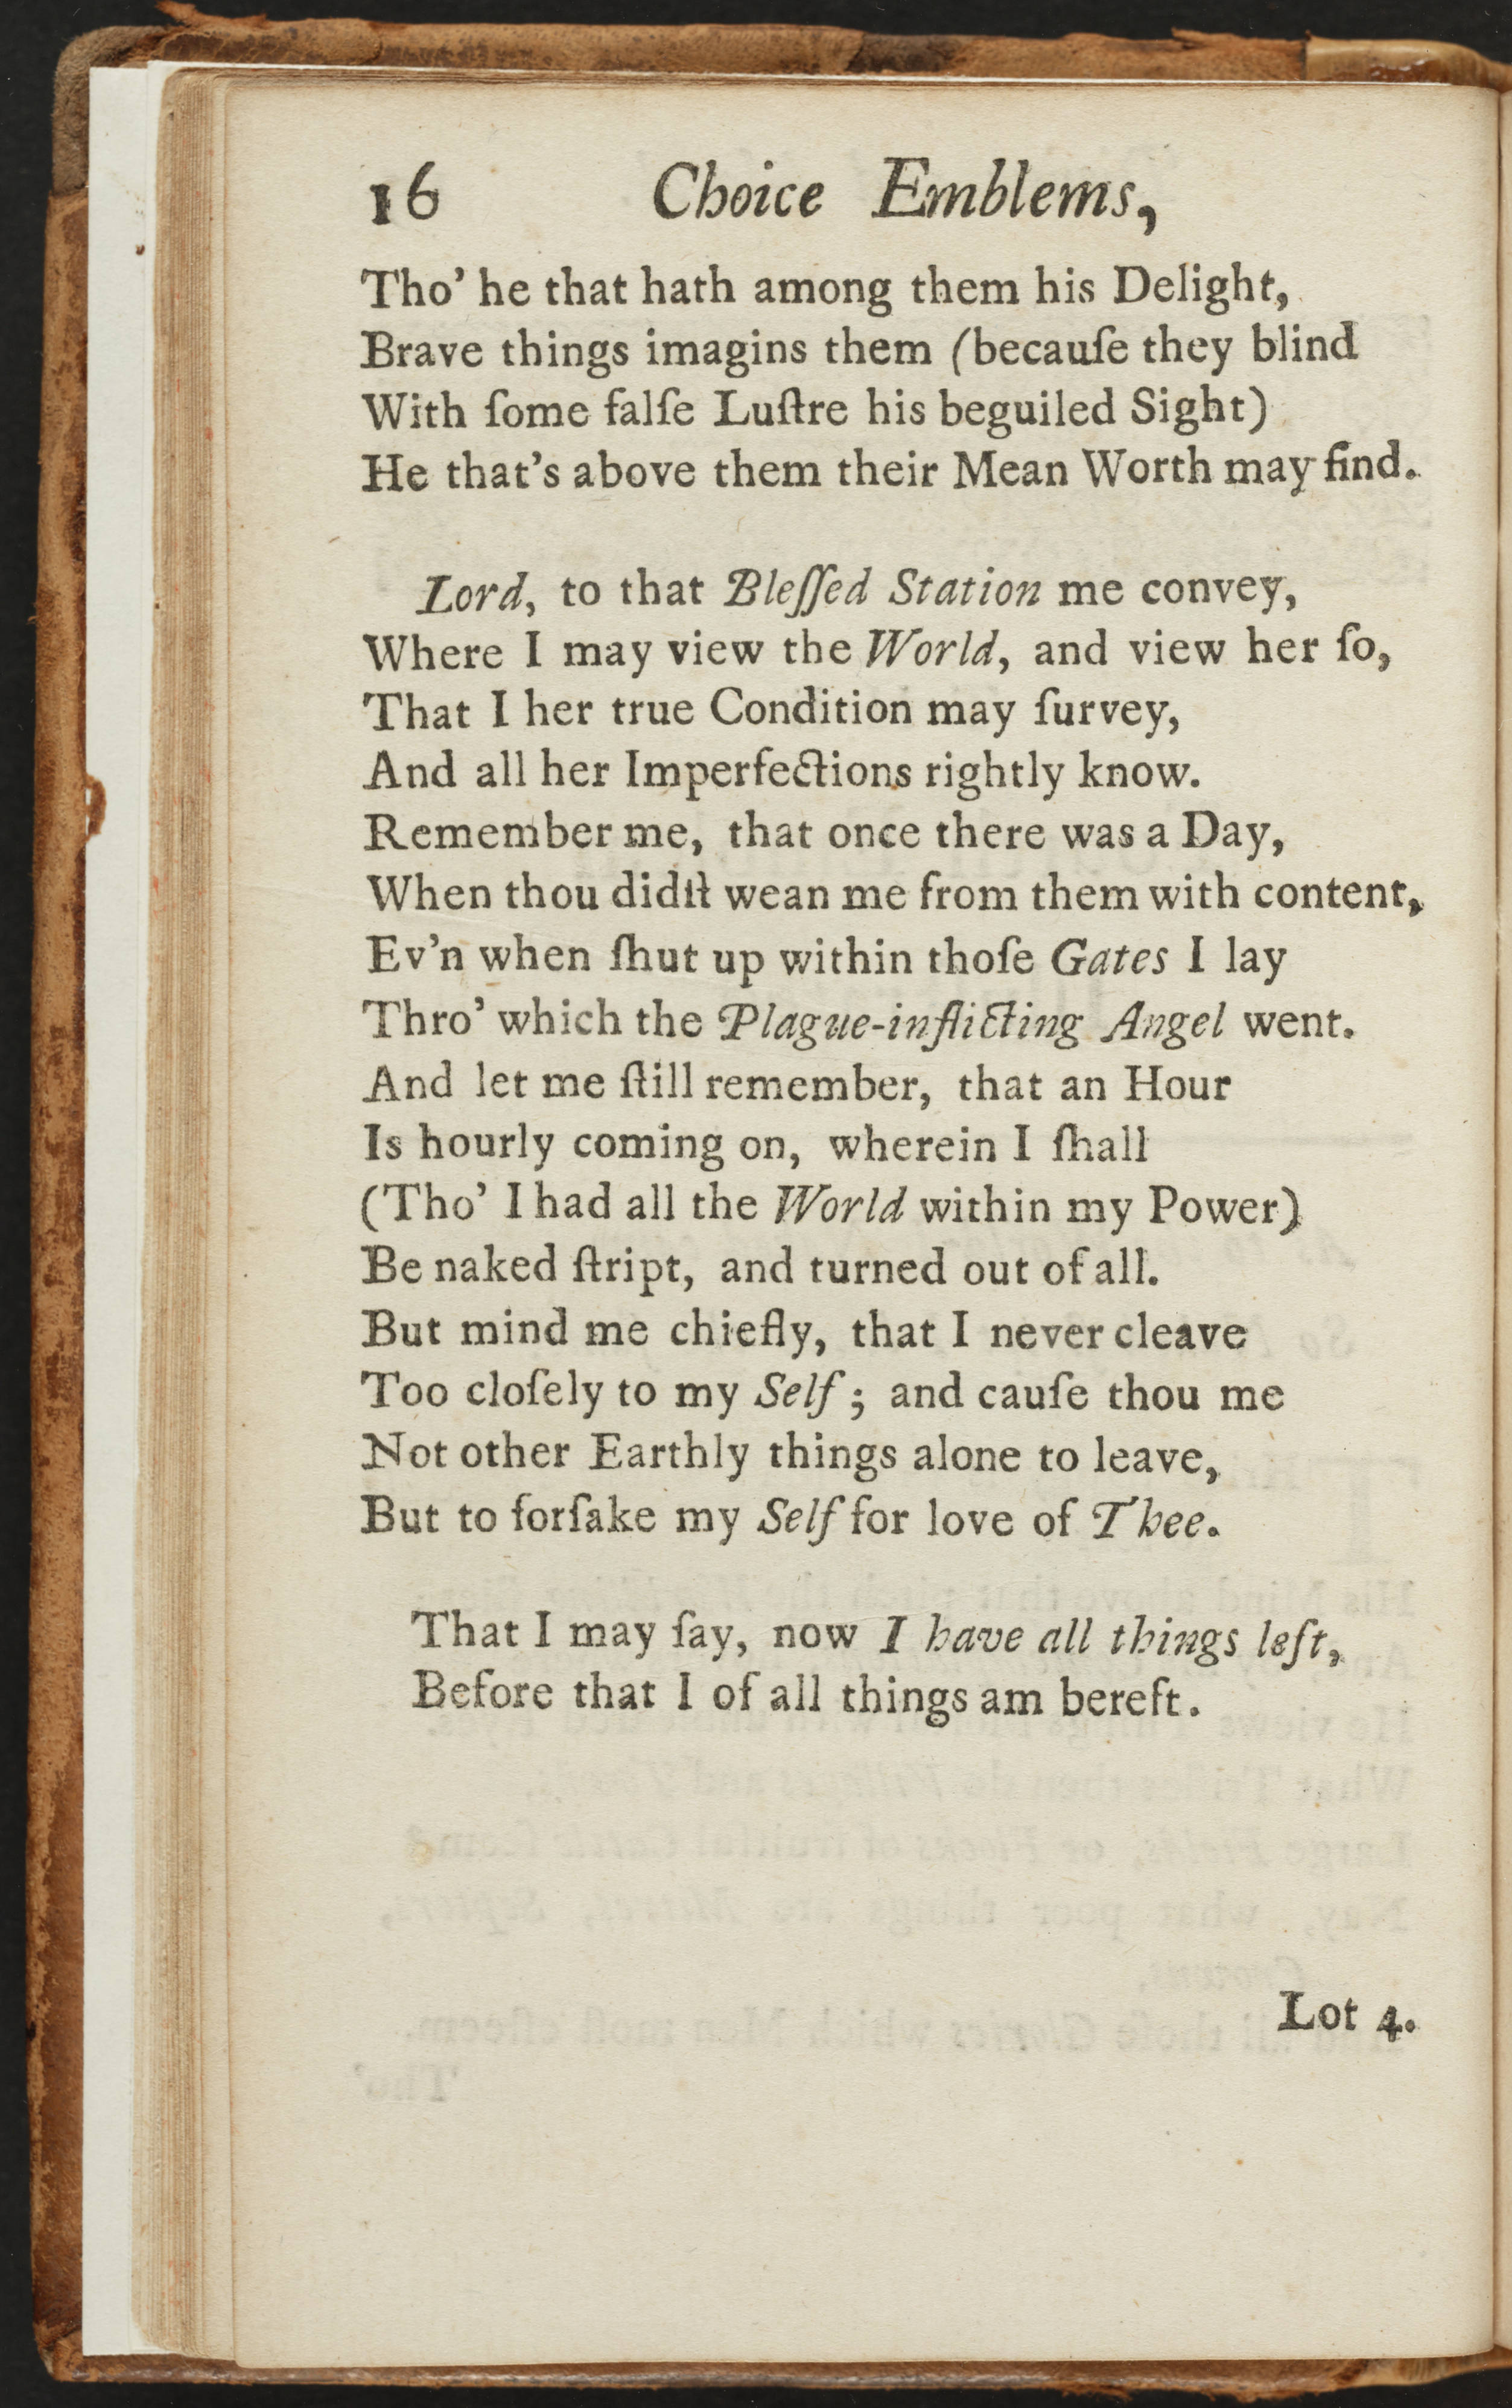 16 Choice Emblems,
Tho' he that hath among them his Delight,
Brave things imagins them (becauſe they blind
With ſome falſe Luſtre his beguiled Sight)
He that's above them their Mean Worth may find.
Lord, to that Bleſſed Station me convey,
Where I may view the World, and view her ſo,
That I her true Condition may ſurvey,
And all her Imperfections rightly know.
Remember me, that once there was a Day,
When thou didſt wean me from them with content,
Ev'n when ſhut up within thoſe Gates I lay
Thro' which the Plague-inflicting Angel went.
And let me ſtill remember, that an Hour
Is hourly coming on, wherein I ſhall
(Tho' I had all the World within my Power)
Be naked ſtript, and turned out of all.
But mind me chiefly, that I never cleave
Too cloſely to my Self; and cauſe thou me
Not other Earthly things alone to leave,
But to forſake my Self for love of Thee.
That I may ſay, now I have all things left,
Before that I of all things am bereft.
Lot 4.